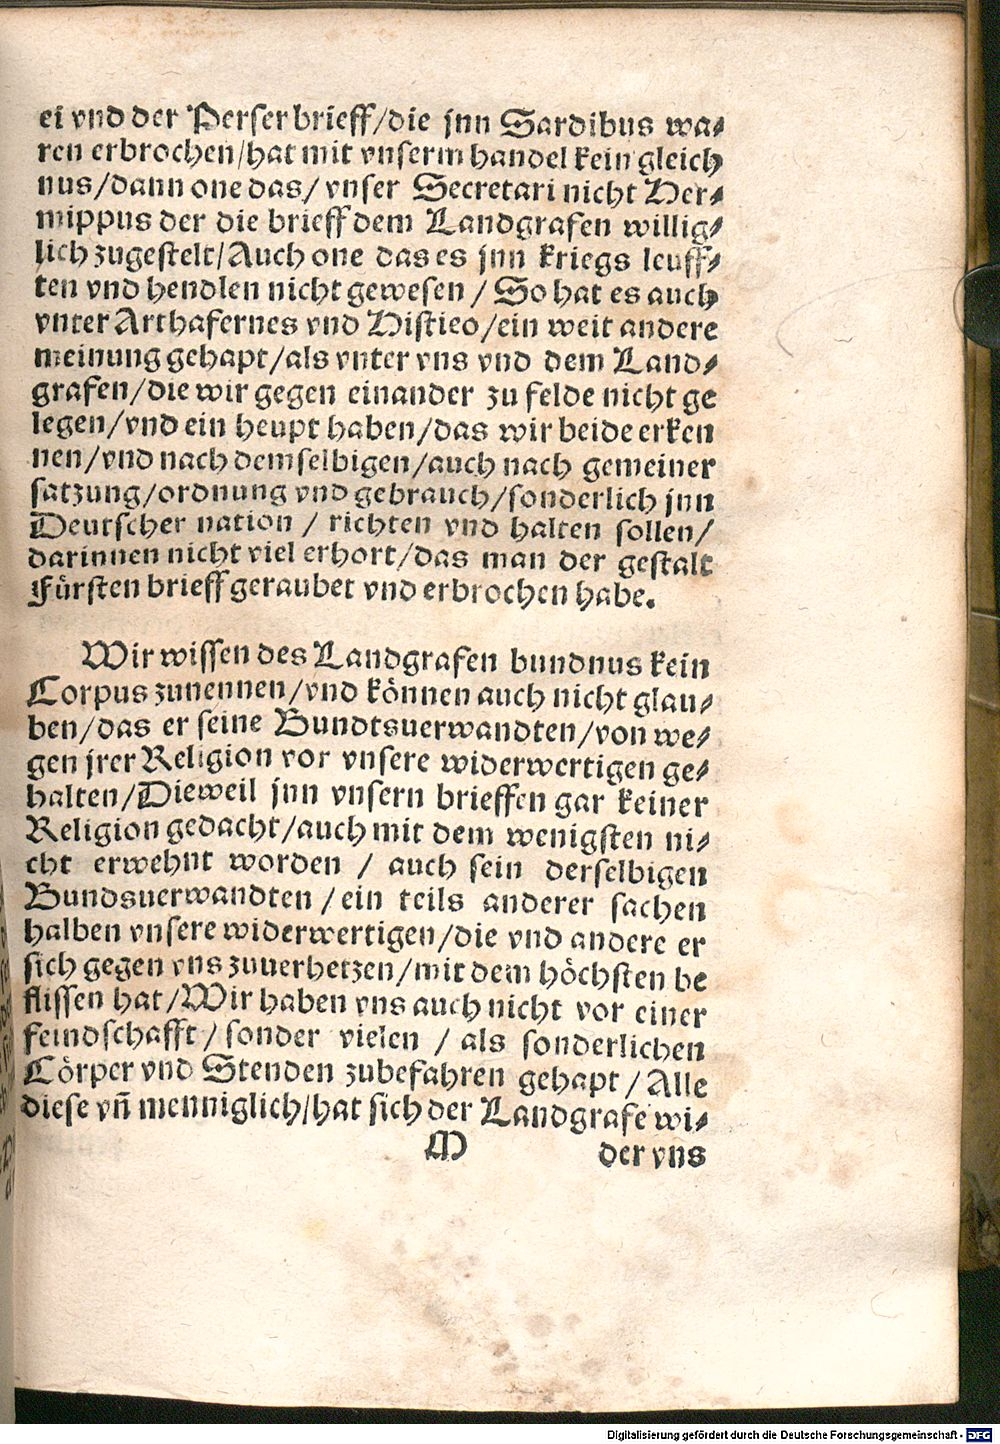 ei vnd der Perser brieff/die jnn Sardibus wa⸗
ren erbrochen/hat mit vnserm handel kein gleich
nus/dann one das/ vnser Secretari nicht Her⸗
mippus der die brieff dem Landgrafen willig⸗
lich zugestelt/Auch one das es jnn kriegs leuff⸗
ten vnd hendlen nicht gewesen / So hat es auch
vnter Arthafernes vnd Histieo/ein weit andere
meinung gehapt/als vnter vns vnd dem Land⸗
grafen/die wir gegen einander zu felde nicht ge
legen/vnd ein heupt haben/das wir beide erken
nen/vnd nach demselbigen/auch nach gemeiner
satzung/ordnung vnd gebrauch/sonderlich jnn
Deutscher nation / richten vnd halten sollen/
darinnen nicht viel erhort/das man der gestalt
Fürsten brieff geraubet vnd erbrochen habe.
Wir wissen des Landgrafen bundnus kein
Corpus zunennen/vnd können auch nicht glau⸗
ben/das er seine Bundtsuerwandten/von we⸗
gen jrer Religion vor vnsere widerwertigen ge⸗
halten/Dieweil jnn vnsern brieffen gar keiner
Religion gedacht/auch mit dem wenigsten ni⸗
cht erwehnt worden / auch sein derselbigen
Bundsuerwandten / ein teils anderer sachen
halben vnsere widerwertigen/die vnd andere er
sich gegen vns zuuerhetzen/mit dem höchsten be
flissen hat/Wir haben vns auch nicht vor einer
feindschafft / sonder vielen / als sonderlichen
Cörper vnd Stenden zubefahren gehapt / Alle
diese vñ menniglich/hat sich der Landgrafe wi⸗
M der vns
Digitalisierung gefördert durch die Deutsche Forschungsgemeinschaft - DFG